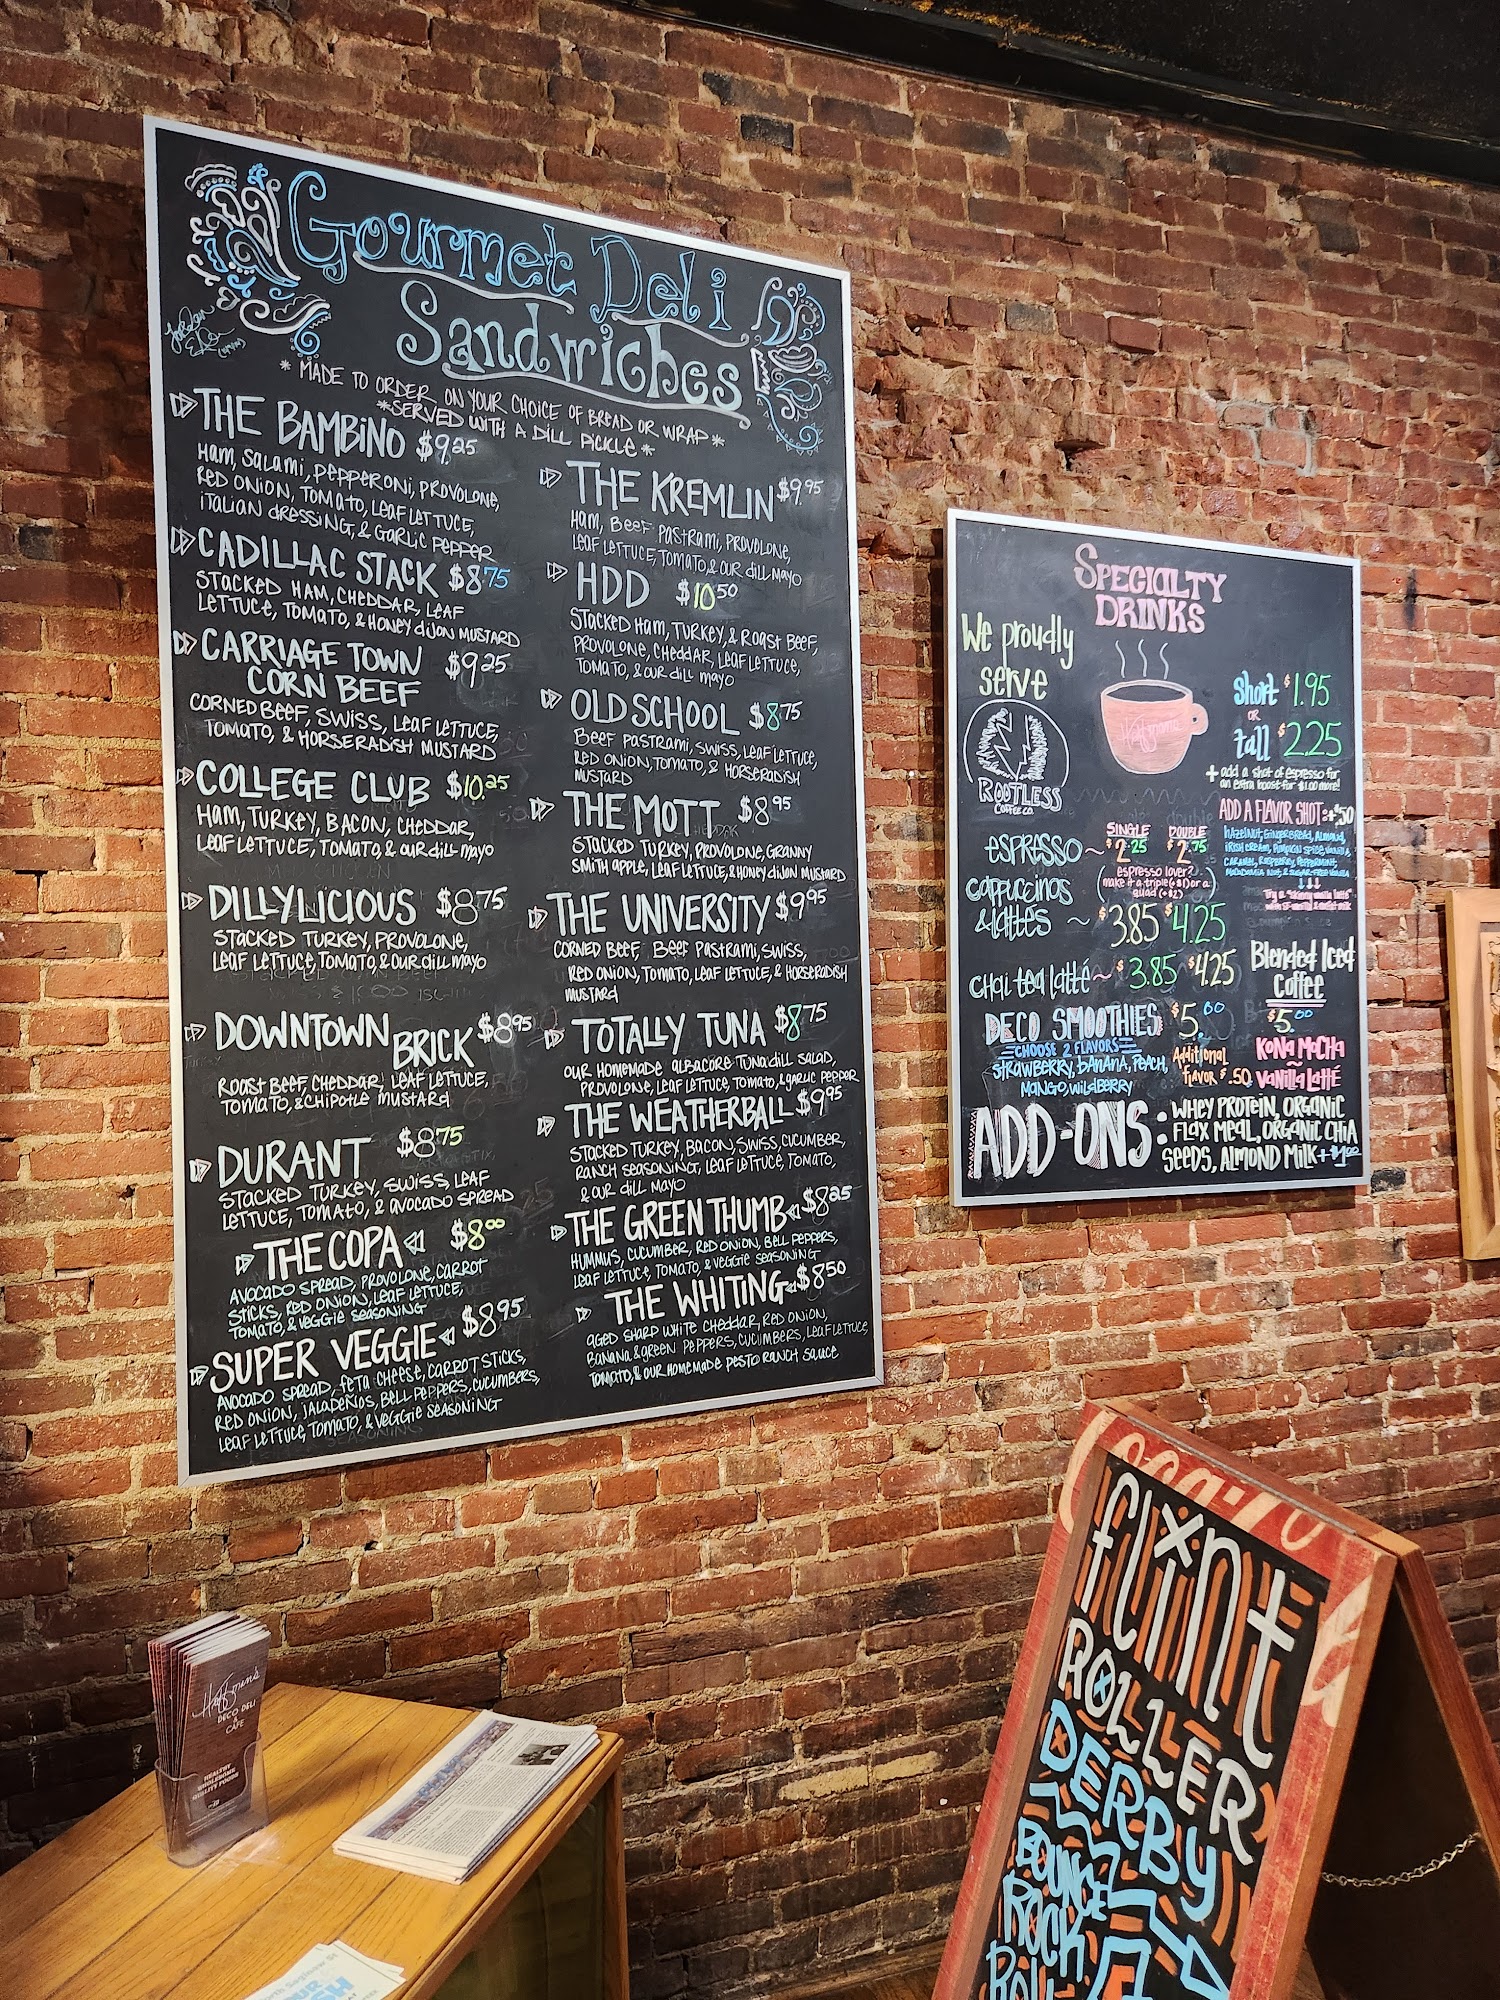 Gourmet Deli
Sandwiches
* MADE TO ORDER ON YOUR CHOICE OF BREAD OR WRAP *
*SERVED WITH A DILL PICKLE *
THE BAMBINO $9.25
HAM, SALAMI, PEPPERONI, PROVOLONE,
RED ONION, TOMATO, LEAF LETTUCE,
ITALIAN DRESSING, & GARLIC PEPPER
CADILLAC STACK $8.75
STACKED HAM, CHEDDAR, LEAF
LETTUCE, TOMATO, & HONEY DIJON MUSTARD
CARRIAGE TOWN
CORN BEEF $9.25
CORNED BEEF, SWISS, LEAF LETTUCE,
TOMATO, & HORSERADISH MUSTARD
COLLEGE CLUB $10.25
HAM, TURKEY, BACON, CHEDDAR,
LEAF LETTUCE, TOMATO, & OUR DILL MAYO
DILLYLICIOUS $8.75
STACKED TURKEY, PROVOLONE,
LEAF LETTUCE, TOMATO, & OUR DILL MAYO
DOWNTOWN BRICK $8.95
ROAST BEEF, CHEDDAR, LEAF LETTUCE,
TOMATO, & CHIPOTLE MUSTARD
DURANT $8.75
STACKED TURKEY, SWISS, LEAF
LETTUCE, TOMATO, & AVOCADO SPREAD
THE COPA $8.00
AVOCADO SPREAD, PROVOLONE, CARROT
STICKS, RED ONION, LEAF LETTUCE,
TOMATO, & VEGGIE SEASONING
SUPER VEGGIE $8.95
AVOCADO SPREAD, FETA CHEESE, CARROT STICKS,
RED ONION, JALAPEÑOS, BELL PEPPERS, CUCUMBERS,
LEAF LETTUCE, TOMATO, & VEGGIE SEASONING
THE KREMLIN $9.95
HAM, BEEF PASTRAMI, PROVOLONE,
LEAF LETTUCE, TOMATO, & OUR DILL MAYO
HDD $10.50
STACKED HAM, TURKEY, & ROAST BEEF,
PROVOLONE, CHEDDAR, LEAF LETTUCE,
TOMATO, & OUR DILL MAYO
OLD SCHOOL $8.75
BEEF PASTRAMI, SWISS, LEAF LETTUCE,
RED ONION, TOMATO, & HORSERADISH
MUSTARD
THE MOTT $8.95
STACKED TURKEY, PROVOLONE, GRANNY
SMITH APPLE, LEAF LETTUCE, & HONEY DIJON MUSTARD
THE UNIVERSITY $9.95
CORNED BEEF, BEEF PASTRAMI, SWISS,
RED ONION, TOMATO, LEAF LETTUCE, & HORSERADISH
MUSTARD
TOTALLY TUNA $8.75
OUR HOMEMADE ALBACORE TUNA DILL SALAD,
PROVOLONE, LEAF LETTUCE, TOMATO, & GARLIC PEPPER
THE WEATHERBALL $9.95
STACKED TURKEY, BACON, SWISS, CUCUMBER,
RANCH SEASONING, LEAF LETTUCE, TOMATO,
& OUR DILL MAYO
THE GREEN THUMB $8.25
HUMMUS, CUCUMBER, RED ONION, BELL PEPPERS,
LEAF LETTUCE, TOMATO, & VEGGIE SEASONING
THE WHITING $8.50
AGED SHARP WHITE CHEDDAR, RED ONION,
BANANA & GREEN PEPPERS, CUCUMBERS, LEAF LETTUCE,
TOMATO, & OUR HOMEMADE PESTO RANCH SAUCE
SPECIALTY
DRINKS
We proudly
serve
ROOTLESS
COFFEE CO.
Hoffman's
short $1.95
OR
tall $2.25
+ add a shot of espresso for
an extra boost for $1.00 more!
ADD A FLAVOR SHOT: +$.50
HAZELNUT, GINGERBREAD, ALMOND,
IRISH CREAM, PUMPKIN SPICE, VANILLA,
CARAMEL, RASPBERRY, PEPPERMINT,
MACADAMIA NUT, & SUGAR-FREE VANILLA
Try a "skinny vanilla latte"
SINGLE DOUBLE
ESPRESSO ~ $2.25 $2.75
(espresso lover?
make it a triple (+$1) or a
quad (+$2))
cappuccinos
& lattés ~ $3.85 $4.25
chai tea latté ~ $3.85 $4.25
DECO SMOOTHIES $5.00
CHOOSE 2 FLAVORS
STRAWBERRY, BANANA, PEACH,
MANGO, WILDBERRY
Additional
flavor $.50
Blended Iced
Coffee
$5.00
KONA MOCHA
VANILLA LATTÉ
ADD-ONS: WHEY PROTEIN, ORGANIC
FLAX MEAL, ORGANIC CHIA
SEEDS, ALMOND MILK +$1.00
flint
ROLLER
DERBY
BOUNCE
ROCK
ROLL
Hoffman's
DECO DELI
&
CAFE
HEALTHY
WHOLESOME
QUALITY FOODS